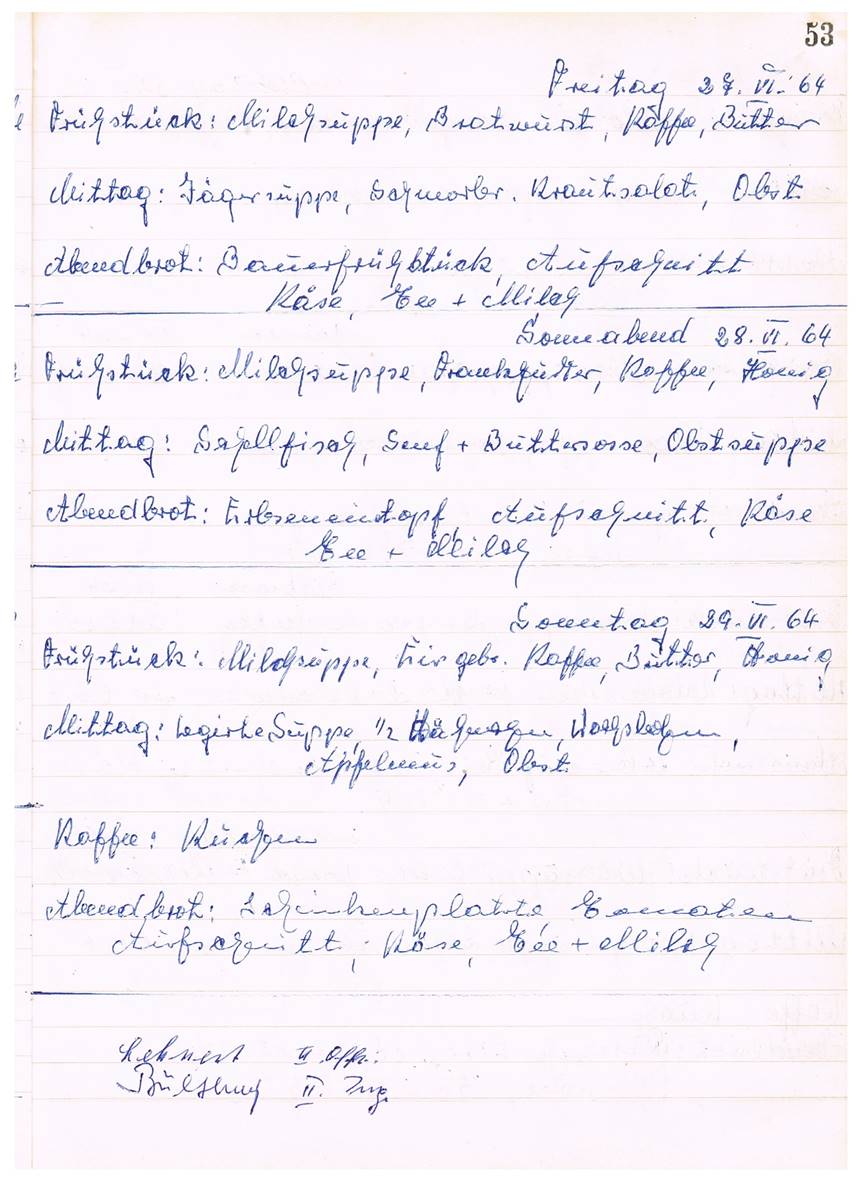 53
Freitag 27. VI. 64
Frühstück: Milchsuppe, Bratwurst, Kaffee, Butter
Mittag: Jägersuppe, Schmorbr. Krautsalat, Obst
Abendbrot: Bauerfrühstück, Aufschnitt
Käse, Tee + Milch
Sonnabend 28. VI. 64
Frühstück: Milchsuppe, Frankfurter, Kaffee, Honig
Mittag: Schellfisch, Senf + Buttersosse, Obstsuppe
Abendbrot: Erbseneintopf, Aufschnitt, Käse
Tee + Milch
Sonntag 29. VI. 64
Frühstück: Milchsuppe, Eier gebr. Kaffee, Butter, Honig
Mittag: Legierte Suppe, 1/2 Hähnchen,
Apfelmus, Obst
Kaffee: Kuchen
Abendbrot: Schinkenplatte, Tomaten
Aufschnitt, Käse, Tee + Milch
Lehnert II Offz.
II. Ing.